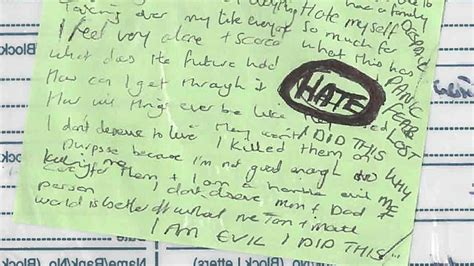 to
had a family
taking over my life everyday
Hate myself so much for DESPAIR
I feel very alone + scared what this has PANIC
what does the future hold FEAR
How can I get through it LOST
HATE
How will things ever be like
I DID THIS
I don't deserve to live. I killed them on WHY
purpose because I'm not good enough ME
to care for them + I am a horrible evil
person I don't deserve Mum + Dad
world is better off without me
I AM EVIL I DID THIS
(Block
No (Block
(Block Letters)
Name/Bank/No. (Block Letters)
Name/Bank/No. (Block